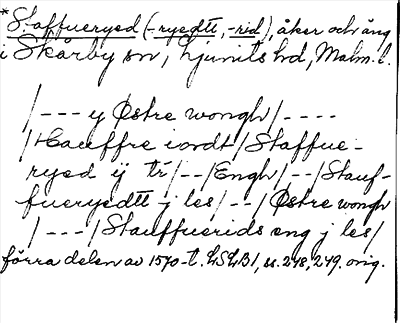 *Staffueryed (-ryedtt, -rid), åker och äng
i Skårby sn, Ljunits hd, Malm. l.
/--- y Østre wongh/----
/Hauffre iordt/Staffue-
ryed ij tr/--/Engh/--/Stauf-
fueryedtt j les/--/Østre wongh
/---/Stauffuerids eng j les/
förra delen av 1570-t. LSLB1, ss. 248, 249. orig.